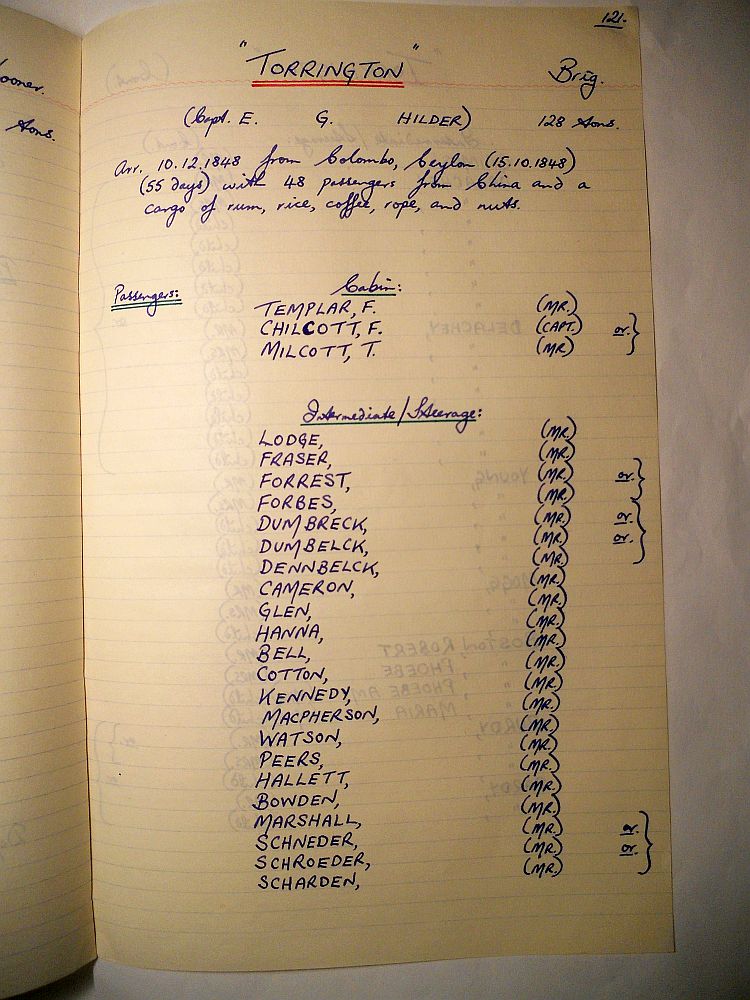 121.
"TORRINGTON" Brig.
(Capt. E. G. HILDER) 128 tons.
Arr. 10.12.1848 from Colombo, Ceylon (15.10.1848)
(55 days) with 48 passengers from China and a
cargo of rum, rice, coffee, rope, and nuts.
Passengers: Cabin:
TEMPLAR, F. (MR.)
CHILCOTT, F. (CAPT.) or.
MILCOTT, T. (MR)
Intermediate/Steerage:
LODGE, (MR.)
FRASER, (MR.)
FORREST, (MR.) or.
FORBES, (MR.)
DUMBRECK, (MR.) or.
DUMBELCK, (MR.) or.
DENNBELCK, (MR.)
CAMERON, (MR.)
GLEN, (MR.)
HANNA, (MR.)
BELL, (MR.)
COTTON, (MR.)
KENNEDY, (MR.)
MACPHERSON, (MR.)
WATSON, (MR.)
PEERS, (MR.)
HALLETT, (MR.)
BOWDEN, (MR.)
MARSHALL, (MR.)
SCHNEDER, (MR.) or.
SCHROEDER, (MR.) or.
SCHARDEN, (MR.)